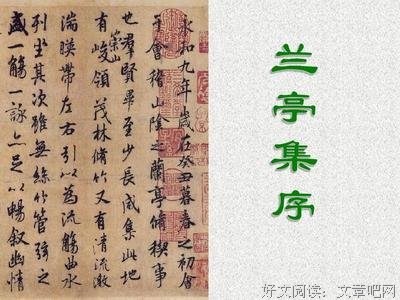 永和九年歲在癸丑暮春之初會
于會稽山陰之蘭亭脩稧事
也羣賢畢至少長咸集此地
有崇山峻領茂林脩竹又有清流激
湍暎帶左右引以為流觴曲水
列坐其次雖無絲竹管弦之
盛一觴一詠亦足以暢敘幽情
兰亭集序
好文阅读：文章吧网